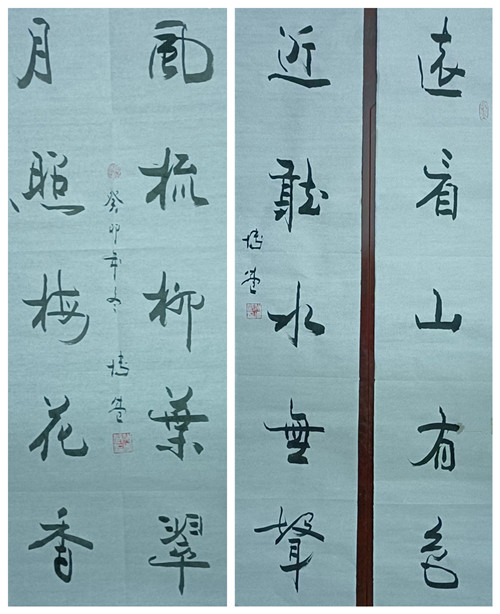 遠看山有色
近聽水無聲
風梳柳葉翠
癸卯年冬
月照梅花香